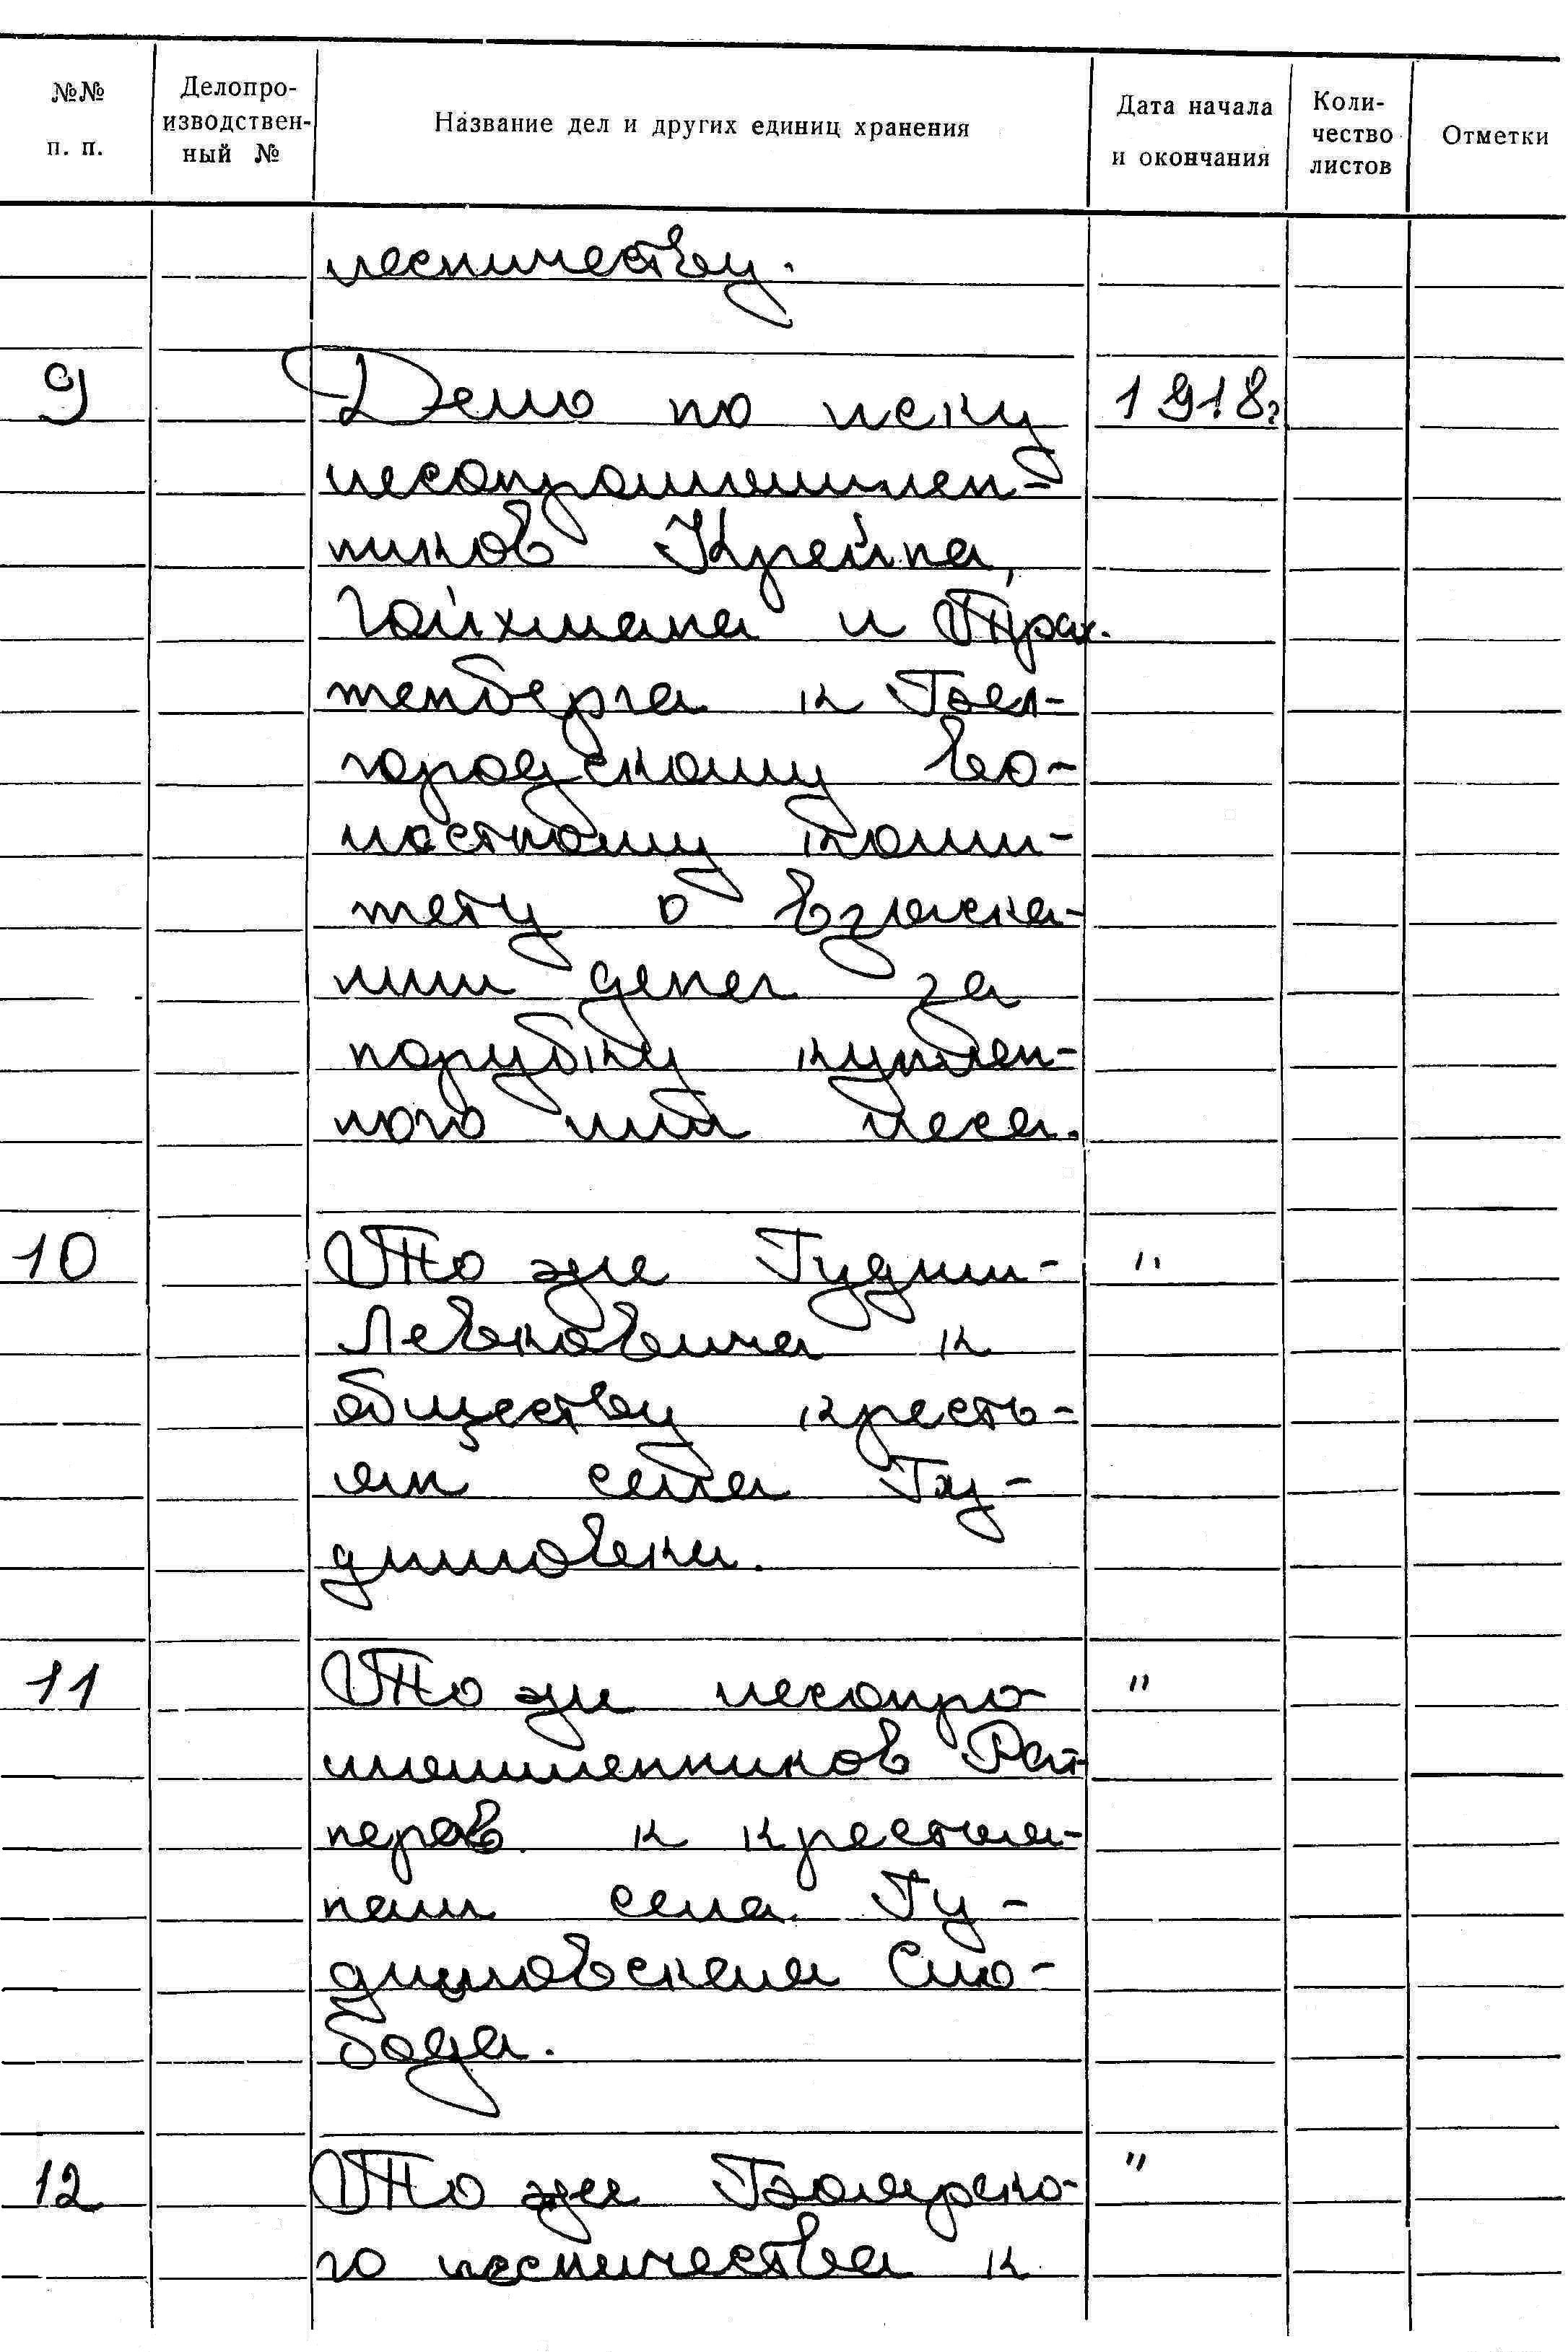 №№ п. п.
Делопро-
изводствен-
ный №
Название дел и других единиц хранения
Дата начала
и окончания
Коли-
чество
листов
Отметки
лесничеству.
9 Дело по иску 1918г
лесопромышлен-
ников Крейна,
Гойхмана и Трах-
тенберга к Бел-
городскому во-
лостному коми-
тету о взыска-
нии денег за
порубку куплен-
ного ими леса.
10 То же Гудим- "
Левковича к
обществу кресть-
ян села Гу-
димовки.
11 То же лесопро- "
мышленников Рат-
неров к крестья-
нам села Гу-
димовская Сло-
бода.
12 То же Боярско- "
го лесничества к